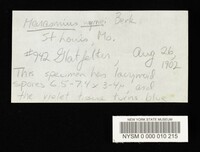 Marasmius Berk.
St Louis Mo.
#742 Glatfelter, Aug 26, 1902
This specimen has fusiform
spores 6.5-7.4 x 3-4μ, and
the violet tissue turns blue
NEW YORK STATE MUSEUM
NYSM 0 000 010 215